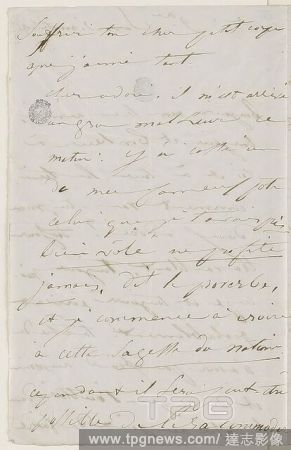 Souffrir ton cher petit corps
que j'aime tant
cher adoré. Il m'est arrivé
un gros malheur ce
matin: j'ai cassé
de mes
celui que je t'avais pris
bien volé ne profite
jamais, dit le proverbe,
et je commence à croire
à cette sagesse des nations
cependant il sera peut être
possible de le raccommoder
TPG
www.tpgnews.com/ 達志影像